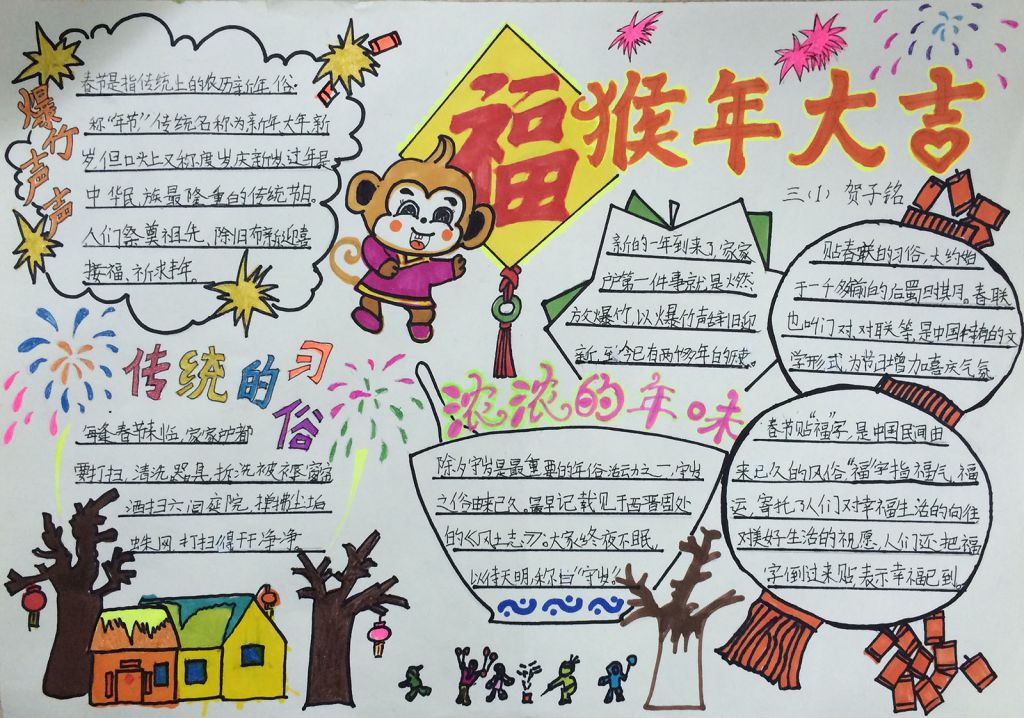 福
猴年大吉
三(1) 贺子铭
爆竹声声
春节是指传统上的农历新年,俗
称“年节”传统名称为新年大年,新
岁但口头上又称度岁庆新岁过年是
中华民族最隆重的传统节日。
人们祭奠祖先、除旧布新迎喜
接福、祈求丰年。
新的一年到来了,家家
户第一件事就是燃
放爆竹,以爆竹声辞旧迎
新,至今已有两千多年的
贴春联的习俗,大约始
于一千多年前的后蜀时期。春联
也叫门对、对联等,是中国特有的文
学形式,为节日增加喜庆气氛
传统的习俗
每逢春节来临,家家户户都
要打扫,清洗器具,拆洗被褥窗帘
洒扫六闾庭院,掸拂尘垢
蛛网,打扫得干干净净
浓浓的年味
除夕守岁是最重要的年俗活动之一,守岁
之俗由来已久。最早记载见于西晋周处
的《风土志》:大家终夜不眠,
以待天明,称曰“守岁”。
春节贴“福”字,是中国民间由
来已久的风俗“福”字指福气,福
运,寄托了人们对幸福生活的向往
对美好生活的祝愿,人们还把福
字倒过来贴,表示幸福已到。